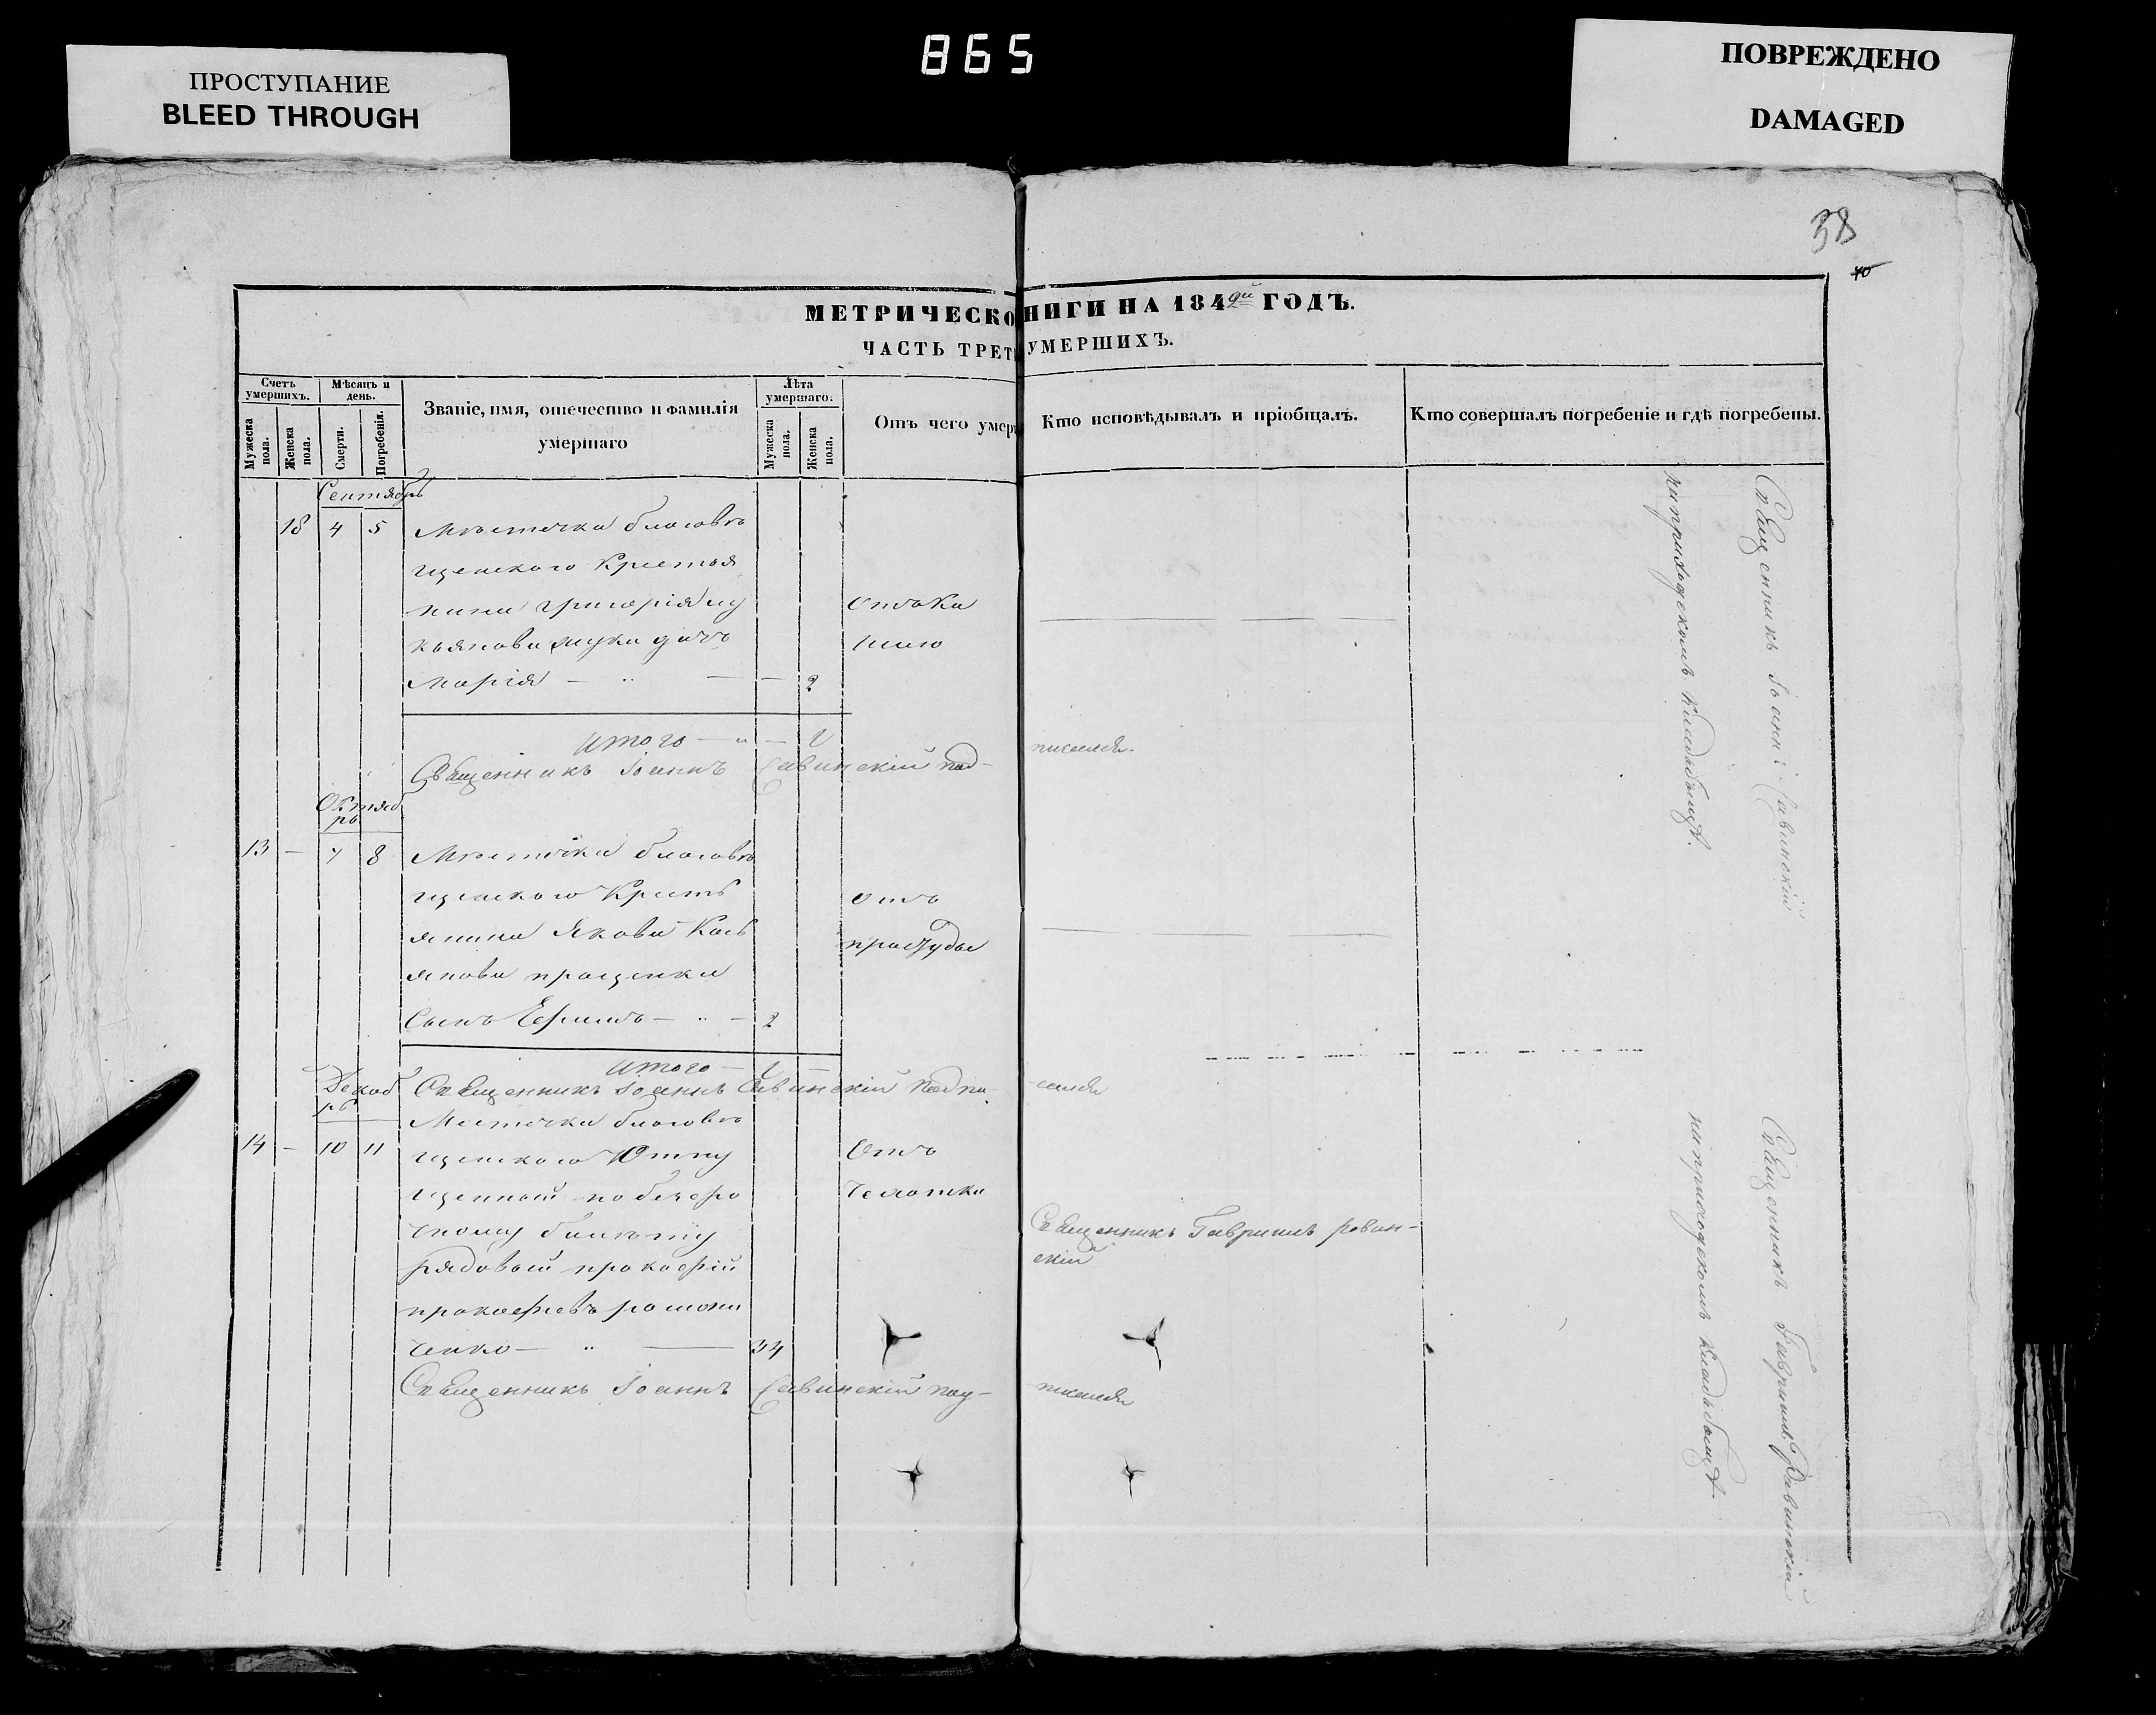 865
ПРОСТУПАНИЕ
BLEED THROUGH
ПОВРЕЖДЕНО
DAMAGED
38
40
МЕТРИЧЕСКО НИГИ НА 1849й ГОДЪ.
ЧАСТЬ ТРЕТ УМЕРШИХЪ.
Счетъ умершихъ.
Мужеска пола.
Женска пола.
Мѣсяцъ и день.
Смерти.
Погребенія.
Званіе, имя, отечество и фамилія
умершаго
Лѣта умершаго.
Мужеска пола.
Женска пола.
Отъ чего умер
Кто исповѣдывалъ и пріобщалъ.
Кто совершалъ погребеніе и гдѣ погребены.
Сентябрь
18 4 5 Мѣстечка благовѣ
щенского Крестья
нина Григорія Лу
кьянова дочь
Марія — „ — — 2
отъ Ка
шлю
Священникъ Іоаннъ Савинскій
на приходскомъ кладбищѣ.
Итого — „ — 1
Священникъ Іоаннъ Савинскій под-
писался.
Октяб
рь
13 — 7 8 Мѣстечка благовѣ
щенского Кресть
янина Якова Касъ
янова прощенка
Сынъ Ефимъ — „ — 2
отъ
простуды
Итого — 1 —
Священникъ Іоаннъ Савинскій подпи-
сался
Декаб
рь
14 — 10 11 Местечка благовѣ
щенского Отпу
щенный по безсро
чному билету
рядовый прокофій
прокофіевъ романи
ченко — „ — 34
Отъ
Чехотки
Священникъ Гавриилъ Равин-
скій
Священникъ Гавриилъ Равинскій
на приходскомъ кладбищѣ.
Священникъ Іоаннъ Савинскій под-
писался